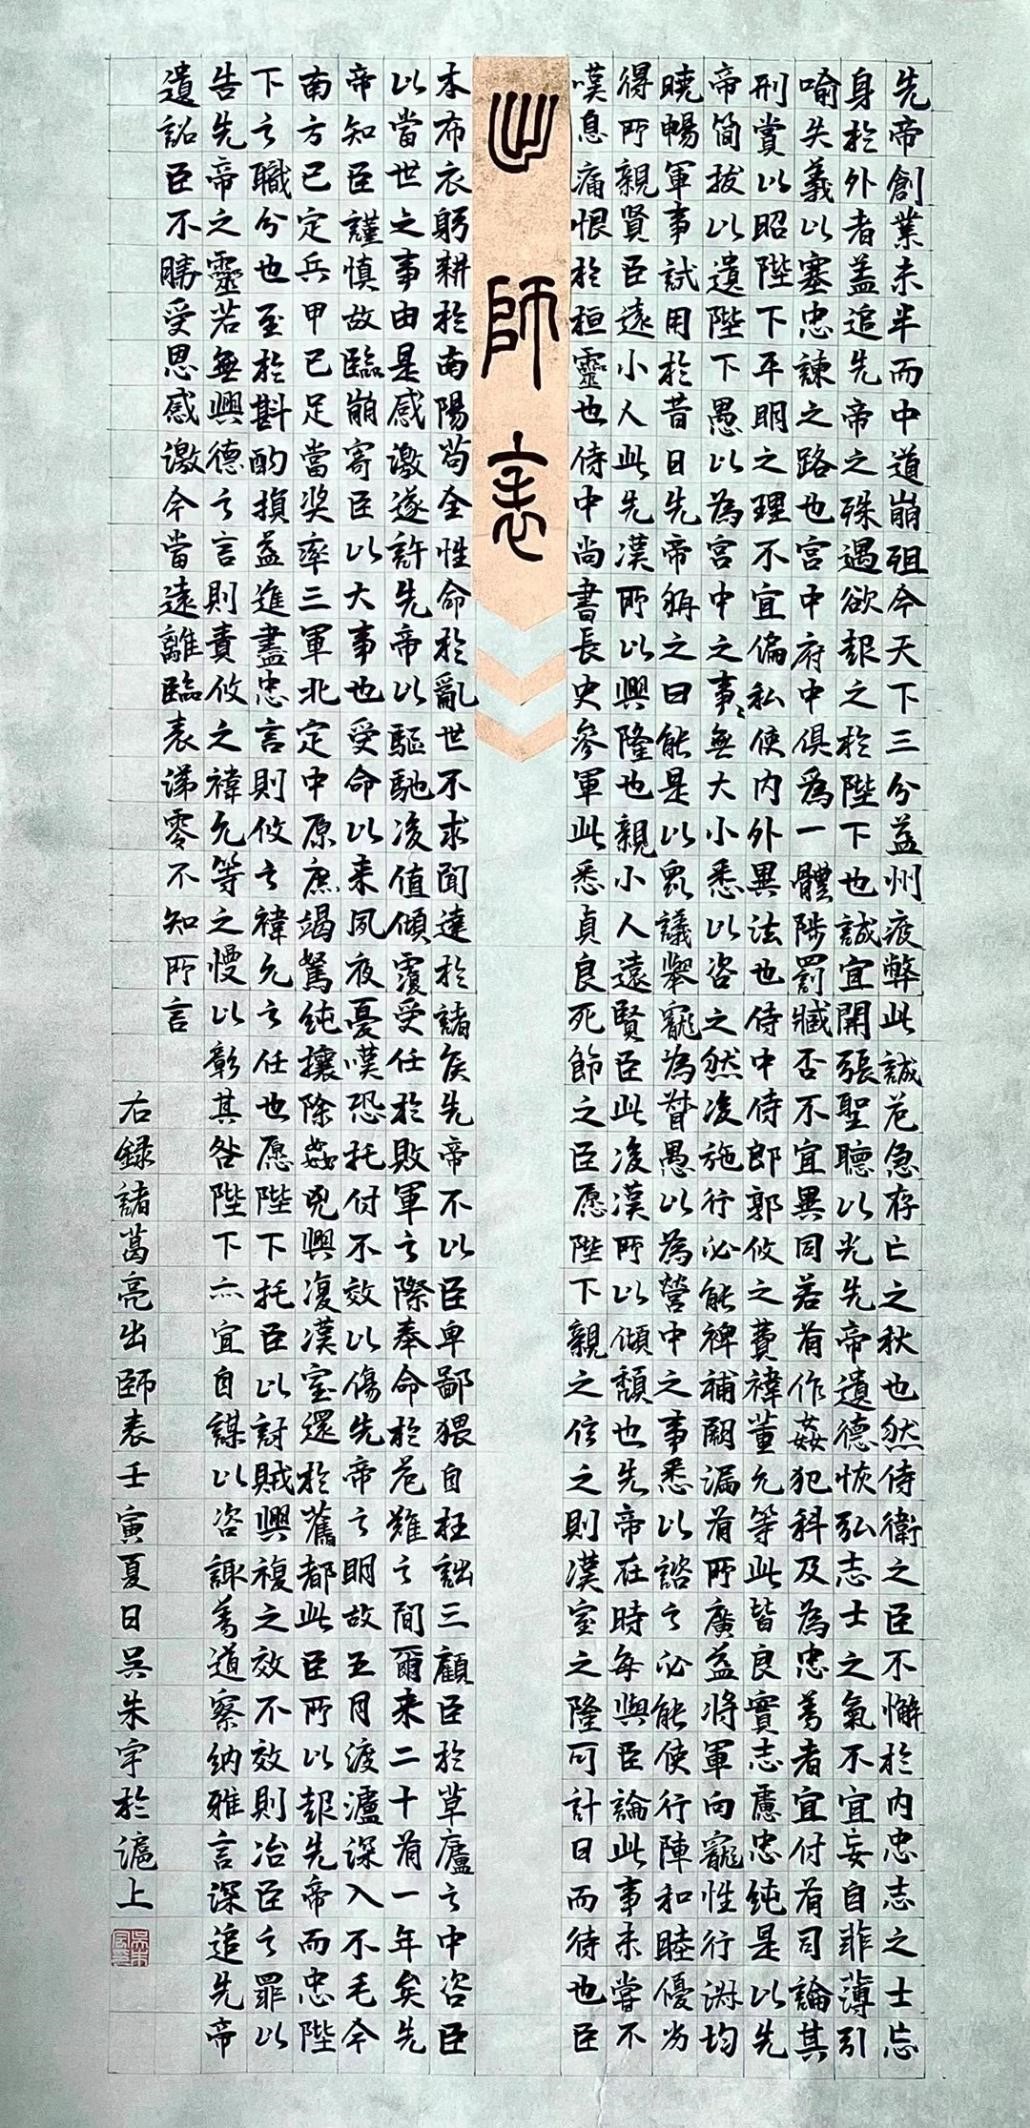 先帝創業未半而中道崩殂今天下三分益州疲弊此誠危急存亡之秋也然侍衛之臣不懈於內忠志之士忘
身於外者蓋追先帝之殊遇欲報之於陛下也誠宜開張聖聽以光先帝遺德恢弘志士之氣不宜妄自菲薄引
喻失義以塞忠諫之路也宮中府中俱為一體陟罰臧否不宜異同若有作姦犯科及為忠善者宜付有司論其
刑賞以昭陛下平明之理不宜偏私使內外異法也侍中侍郎郭攸之費禕董允等此皆良實志慮忠純是以先
帝簡拔以遺陛下愚以為宮中之事〻無大小悉以咨之然後施行必能裨補闕漏有所廣益將軍向寵性行淑均
曉暢軍事試用於昔日先帝稱之曰能是以眾議舉寵為督愚以為營中之事悉以諮之必能使行陣和睦優劣
得所親賢臣遠小人此先漢所以興隆也親小人遠賢臣此後漢所以傾頹也先帝在時每與臣論此事未嘗不
嘆息痛恨於桓靈也侍中尚書長史參軍此悉貞良死節之臣愿陛下親之信之則漢室之隆可計日而待也臣
出師表
本布衣躬耕於南陽苟全性命於亂世不求聞達於諸侯先帝不以臣卑鄙猥自枉詘三顧臣於草廬之中咨臣
以當世之事由是感激遂許先帝以驅馳後值傾覆受任於敗軍之際奉命於危難之間爾來二十有一年矣先
帝知臣謹慎故臨崩寄臣以大事也受命以來夙夜憂嘆恐托付不效以傷先帝之明故五月渡瀘深入不毛今
南方已定兵甲已足當奨率三軍北定中原庶竭駑純攘除姦兇興復漢室還於舊都此臣所以報先帝而忠陛
下之職分也至於斟酌損益進盡忠言則攸之禕允之任也愿陛下托臣以討賊興複之效不效則治臣之罪以
告先帝之靈若無興德之言則責攸之禕允等之慢以彰其咎陛下亦宜自謀以咨諏善道察納雅言深追先帝
遺詔臣不勝受恩感激今當遠離臨表涕零不知所言
右錄諸葛亮出師表壬寅夏日吳朱宇於滬上